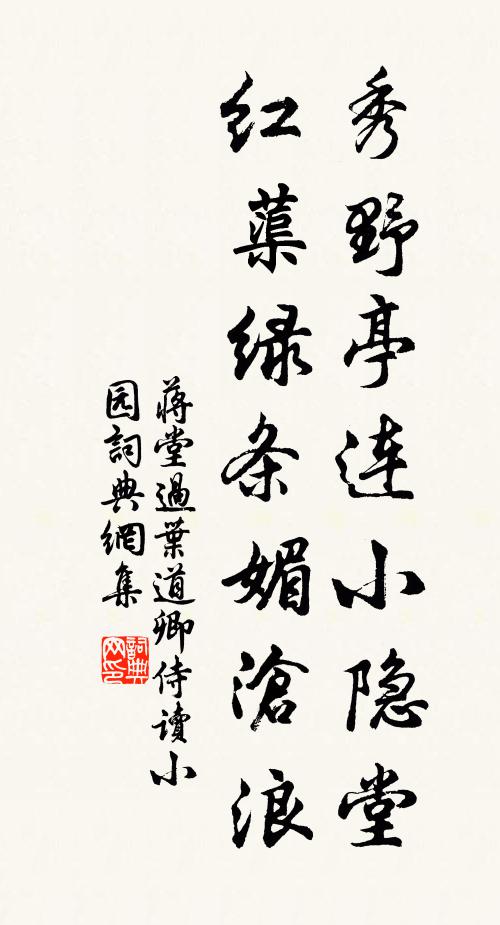 秀野亭连小隐堂
红蕖绿条媚滄浪
蔣堂過葉道卿侍讀小
园詞典網集
詞典网印